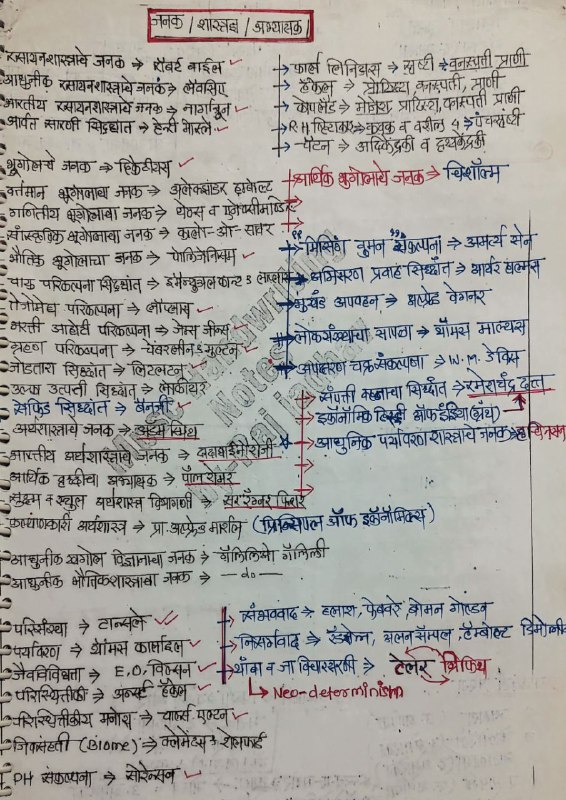 जनक / शास्त्रज्ञ / अभ्यासक
रसायनशास्त्राचे जनक → रॉबर्ट बॉईल
आधुनीक रसायनशास्त्राचे जनक → लेवासिए
भारतीय रसायनशास्त्राचे जनक → नागार्जुन
आर्वत सारणी सिद्धांत → हेन्री मोस्ले
→ कार्ल लिनिअस → सृष्टी → वनस्पती प्राणी
→ हेकेल → प्रोटिस्टा, वनस्पती, प्राणी
→ कोपलँड → मोनेरा, प्रोटिस्टा, वनस्पती प्राणी
→ R.H. व्हिटाकर → कवक व वरील 4 → पंचसृष्टी
→ चॅटन → आदिकेंद्रकी व दृश्यकेंद्रकी
भूगोलाचे जनक → हिकेटीयस
वर्तमान भूगोलाचा जनक → अलेक्झांडर हम्बोल्ट
गणितीय भूगोलाचा जनक → थेल्स व
सांस्कृतिक भूगोलाचा जनक → कार्ल-ओ-सावर
भौतिक भूगोलाचा जनक → पोलिजेनियस
वायु परिकल्पना सिद्धांत → इमॅन्युअल कान्ट व लाप्लास
तेजोमेघ परिकल्पना → लॉप्लास
भरती ओहोटी परिकल्पना → जेम्स जीन्स
ग्रहाणु परिकल्पना → चेंबरलीन व मुल्टन
जोडतारा सिद्धांत → लिटलटन
उल्का उत्पत्ती सिद्धांत → लॉकीयर
सेफिड सिद्धांत → बॅनर्जी
आर्थिक भूगोलाचे जनक → चिशोल्म
"मिसिंग वुमन संकल्पना" → अमर्त्य सेन
अभिसरण प्रवाह सिद्धांत → आर्थर होल्मस
भूखंड अपवहन → अल्फ्रेड वेगनर
लोकसंख्याचा सापळा → थॉमस माल्थस
अपक्षरण चक्र संकल्पना → W.M. डेव्हिस
संपत्ती वहनाचा सिद्धांत → रमेशचंद्र दत्त
इकॉनॉमिक हिस्ट्री ऑफ इंडिया (ग्रंथ)
अर्थशास्त्राचे जनक → अडम स्मिथ
→ आधुनिक पर्यावरणशास्त्राचे जनक →
भारतीय अर्थशास्त्राचे जनक → दादाभाई नौरोजी
आर्थिक वृद्धीचा अभ्यासक → पॉल रोमर
सूक्ष्म व स्थूल अर्थशास्त्र विभागणी → सर रॅग्नर फ्रिश
कल्याणकारी अर्थशास्त्र → प्रा. अल्फ्रेड मार्शल (प्रिन्सिपल ऑफ इकॉनॉमिक्स)
आधुनीक खगोल विज्ञानाचा जनक → गॅलिलिओ गॅलिली
आधुनीक भौतिकशास्त्राचा जनक → — do —
परिसंस्था → टान्सले
पर्यावरण → थॉमस कार्लाइल
जैवविविधता → E.O. विल्सन
परिस्थितीकी → अर्न्स्ट हेकेल
परिस्थितीकीय मनोरा → चार्ल्स एल्टन
जिवसंहती (Biome) → क्लेमेंट्स व शेलफर्ड
PH संकल्पना → सोरेन्सन
→ संभववाद → ब्लाश, फेबवरे, बोमन
→ निसर्गवाद → रॅट्झेल, एलन सॅम्पल, हॅम्बोल्ट
→ थांबा व जा विचारसरणी → टेलर ग्रिफिथ
↳ Neo-determinism
Miss Handwriting
Notes
By-Raj Jadhav